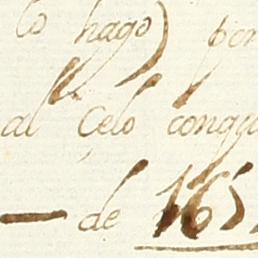 lo hago) por
al Celo conqu
— de 165